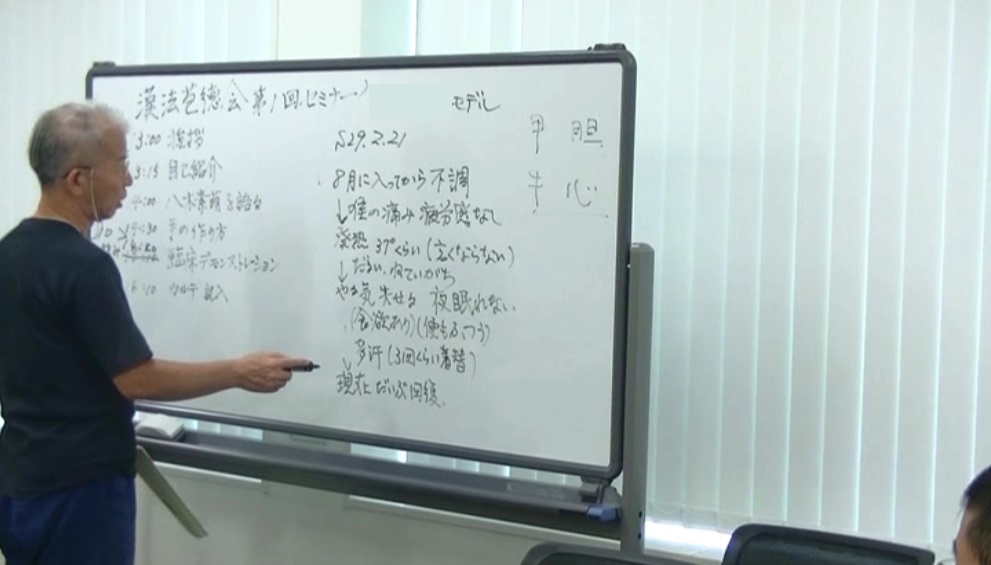 漢法苞徳会第1回セミナー
3:00 挨拶
3:15 自己紹介
4:00 八木素萌を語る
14:30 手の作り方
臨床デモンストレーション
6:10 カルテ記入
モデル
S29.2.21
8月に入ってから不調
↓喉の痛み 疲労感なし
発熱 37°くらい(高くならない)
↓だるい、ねていがち
やる気失せる 夜眠れない
(食欲あり)(便もふつう)
多汗(3回くらい着替)
↓
現在 だいぶ回復。
甲 胆
手 心